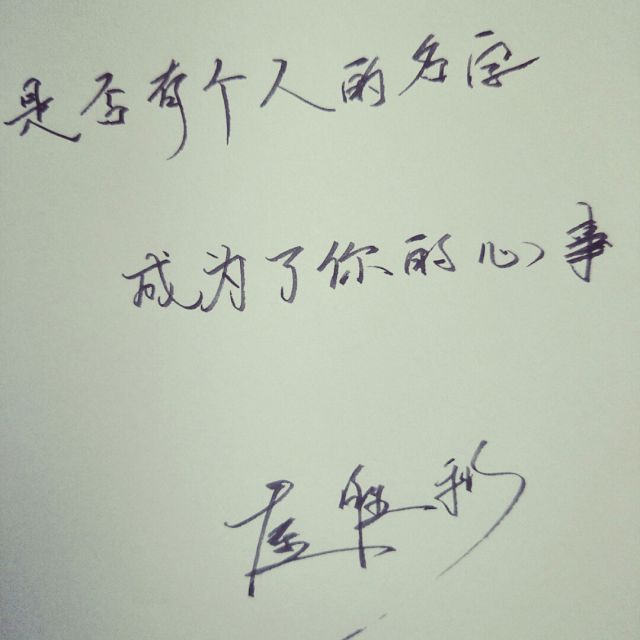 是否有个人的名字
成为了你的心事